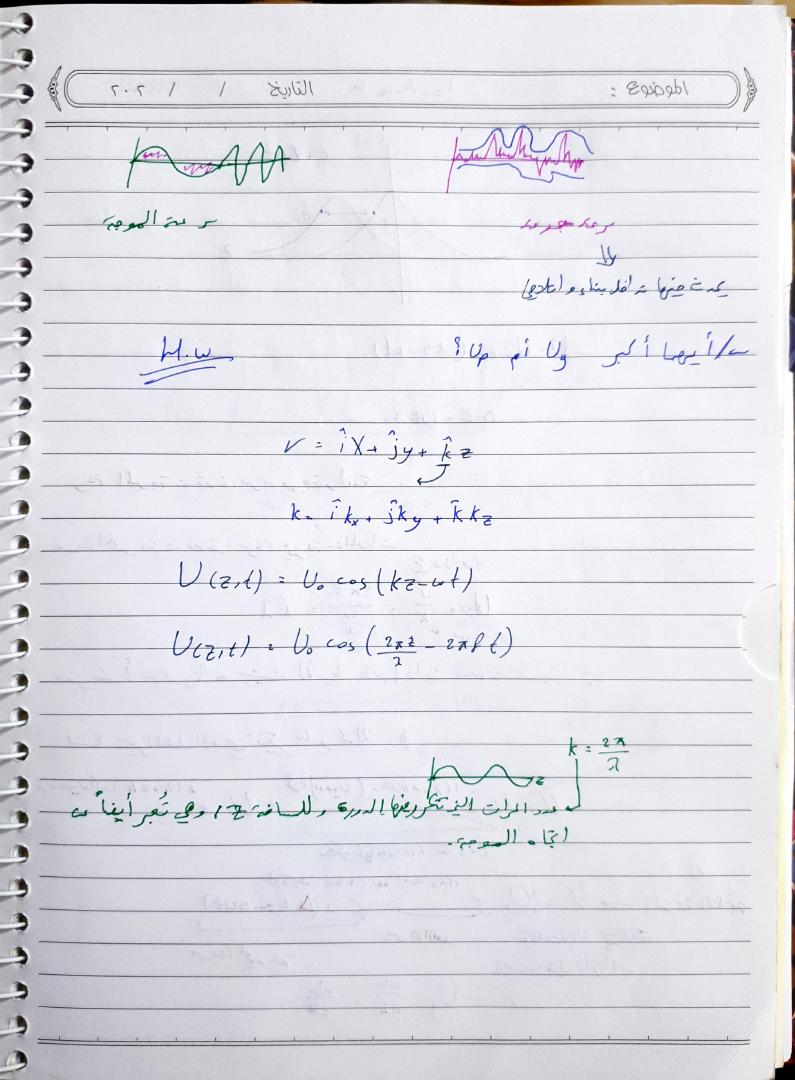 الموضوع : التاريخ / / ٢٠٢
سرعة الموجة
سرعة مجموعة
يحدث فيها تداخل بناء واتلافي
س/ أيهما أكبر Ug أم Up ؟ H.W
r = îx + ĵy + k̂z
k = îkx + ĵky + k̂kz
U(z,t) = U₀ cos(kz-ωt)
U(z,t) = U₀ cos(2πz/λ - 2πft)
k = 2π/λ
z
عدد المرات التي تتكرر فيها الدورة للمسافة z، وهي تُعبر أيضاً عن
اتجاه الموجة.